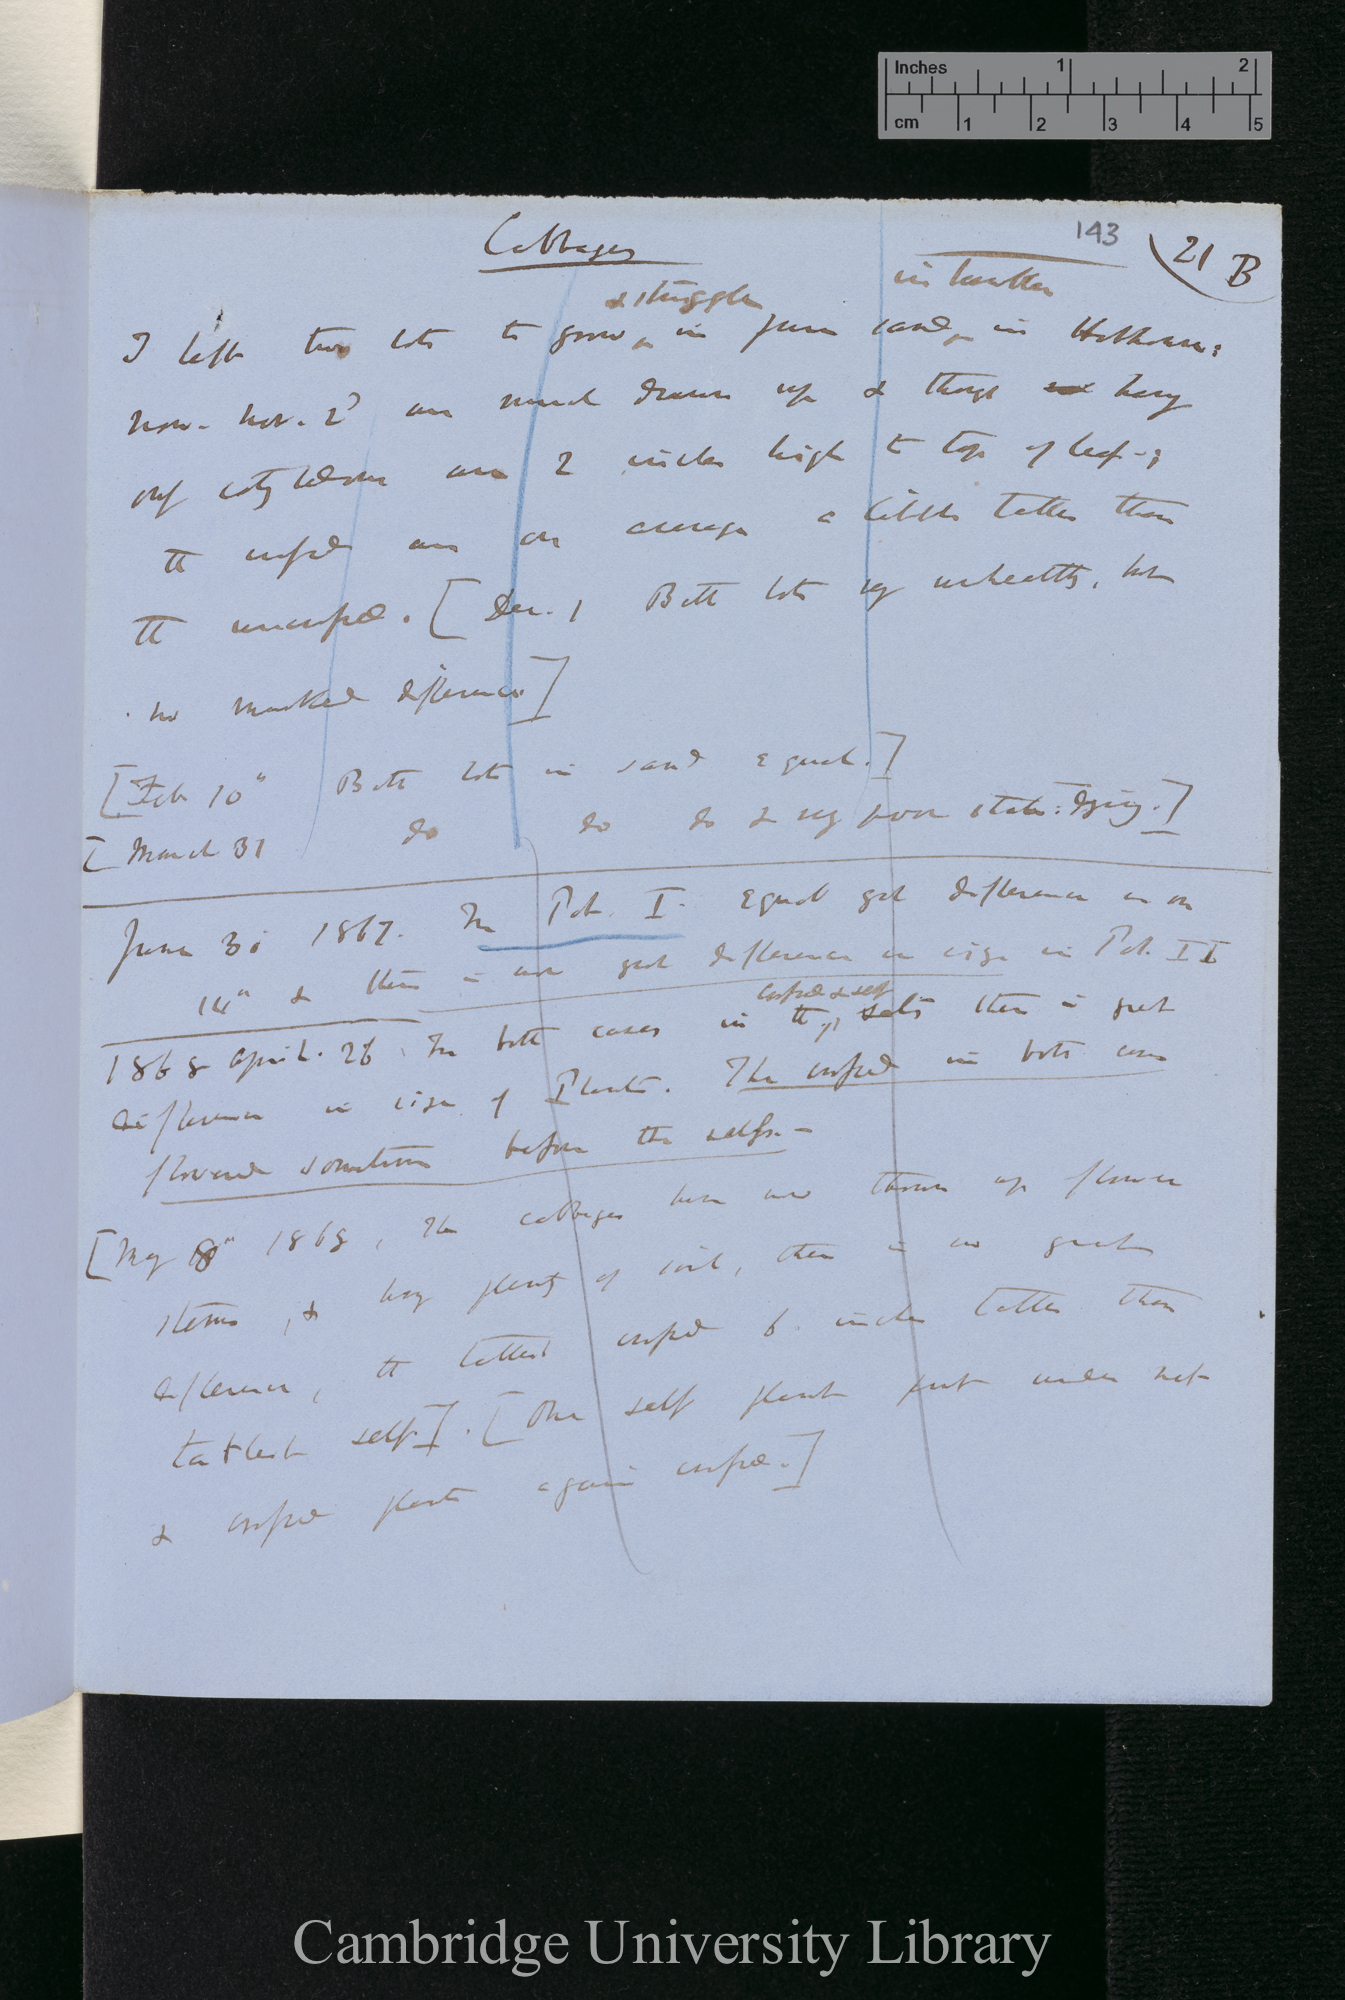 Inches 1 2
cm 1 2 3 4 5
143
21 B
Cabbages
& struggle in tumbler
I left two lots to grow in pure sand in Hothouse:
now. Nov. 2d are much drawn up & though having
only cotyledons are 2 inches high to top of leaf—;
the crossed are on average a little taller than
the uncrossed. [Dec. 1 Both lots very unhealthy, but
no marked difference]
[Feb 10" Both lots in sand equal.]
[March 31 do do do & very poor state: dying.]
June 30 1867. In Pot. I. equal great difference as on
14" & there is now great difference in size in Pot. II
crossed & self
1868 April. 26 In both cases in the sets there is great
difference in size of Plants. The crossed in both cases
flowered sometime before the selfs.—
[May 8" 1868, The cabbages have now thrown up flower
stems, & having plenty of soil, there is no great
difference, the tallest crossed 6 inches taller than
tallest self.]. [One self plant put under net
& crossed plants again crossed.]
Cambridge University Library